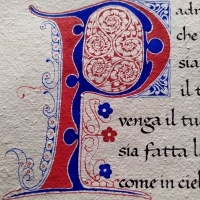 Padr
che
sia
il t
venga il tu
sia fatta l
come in ciel